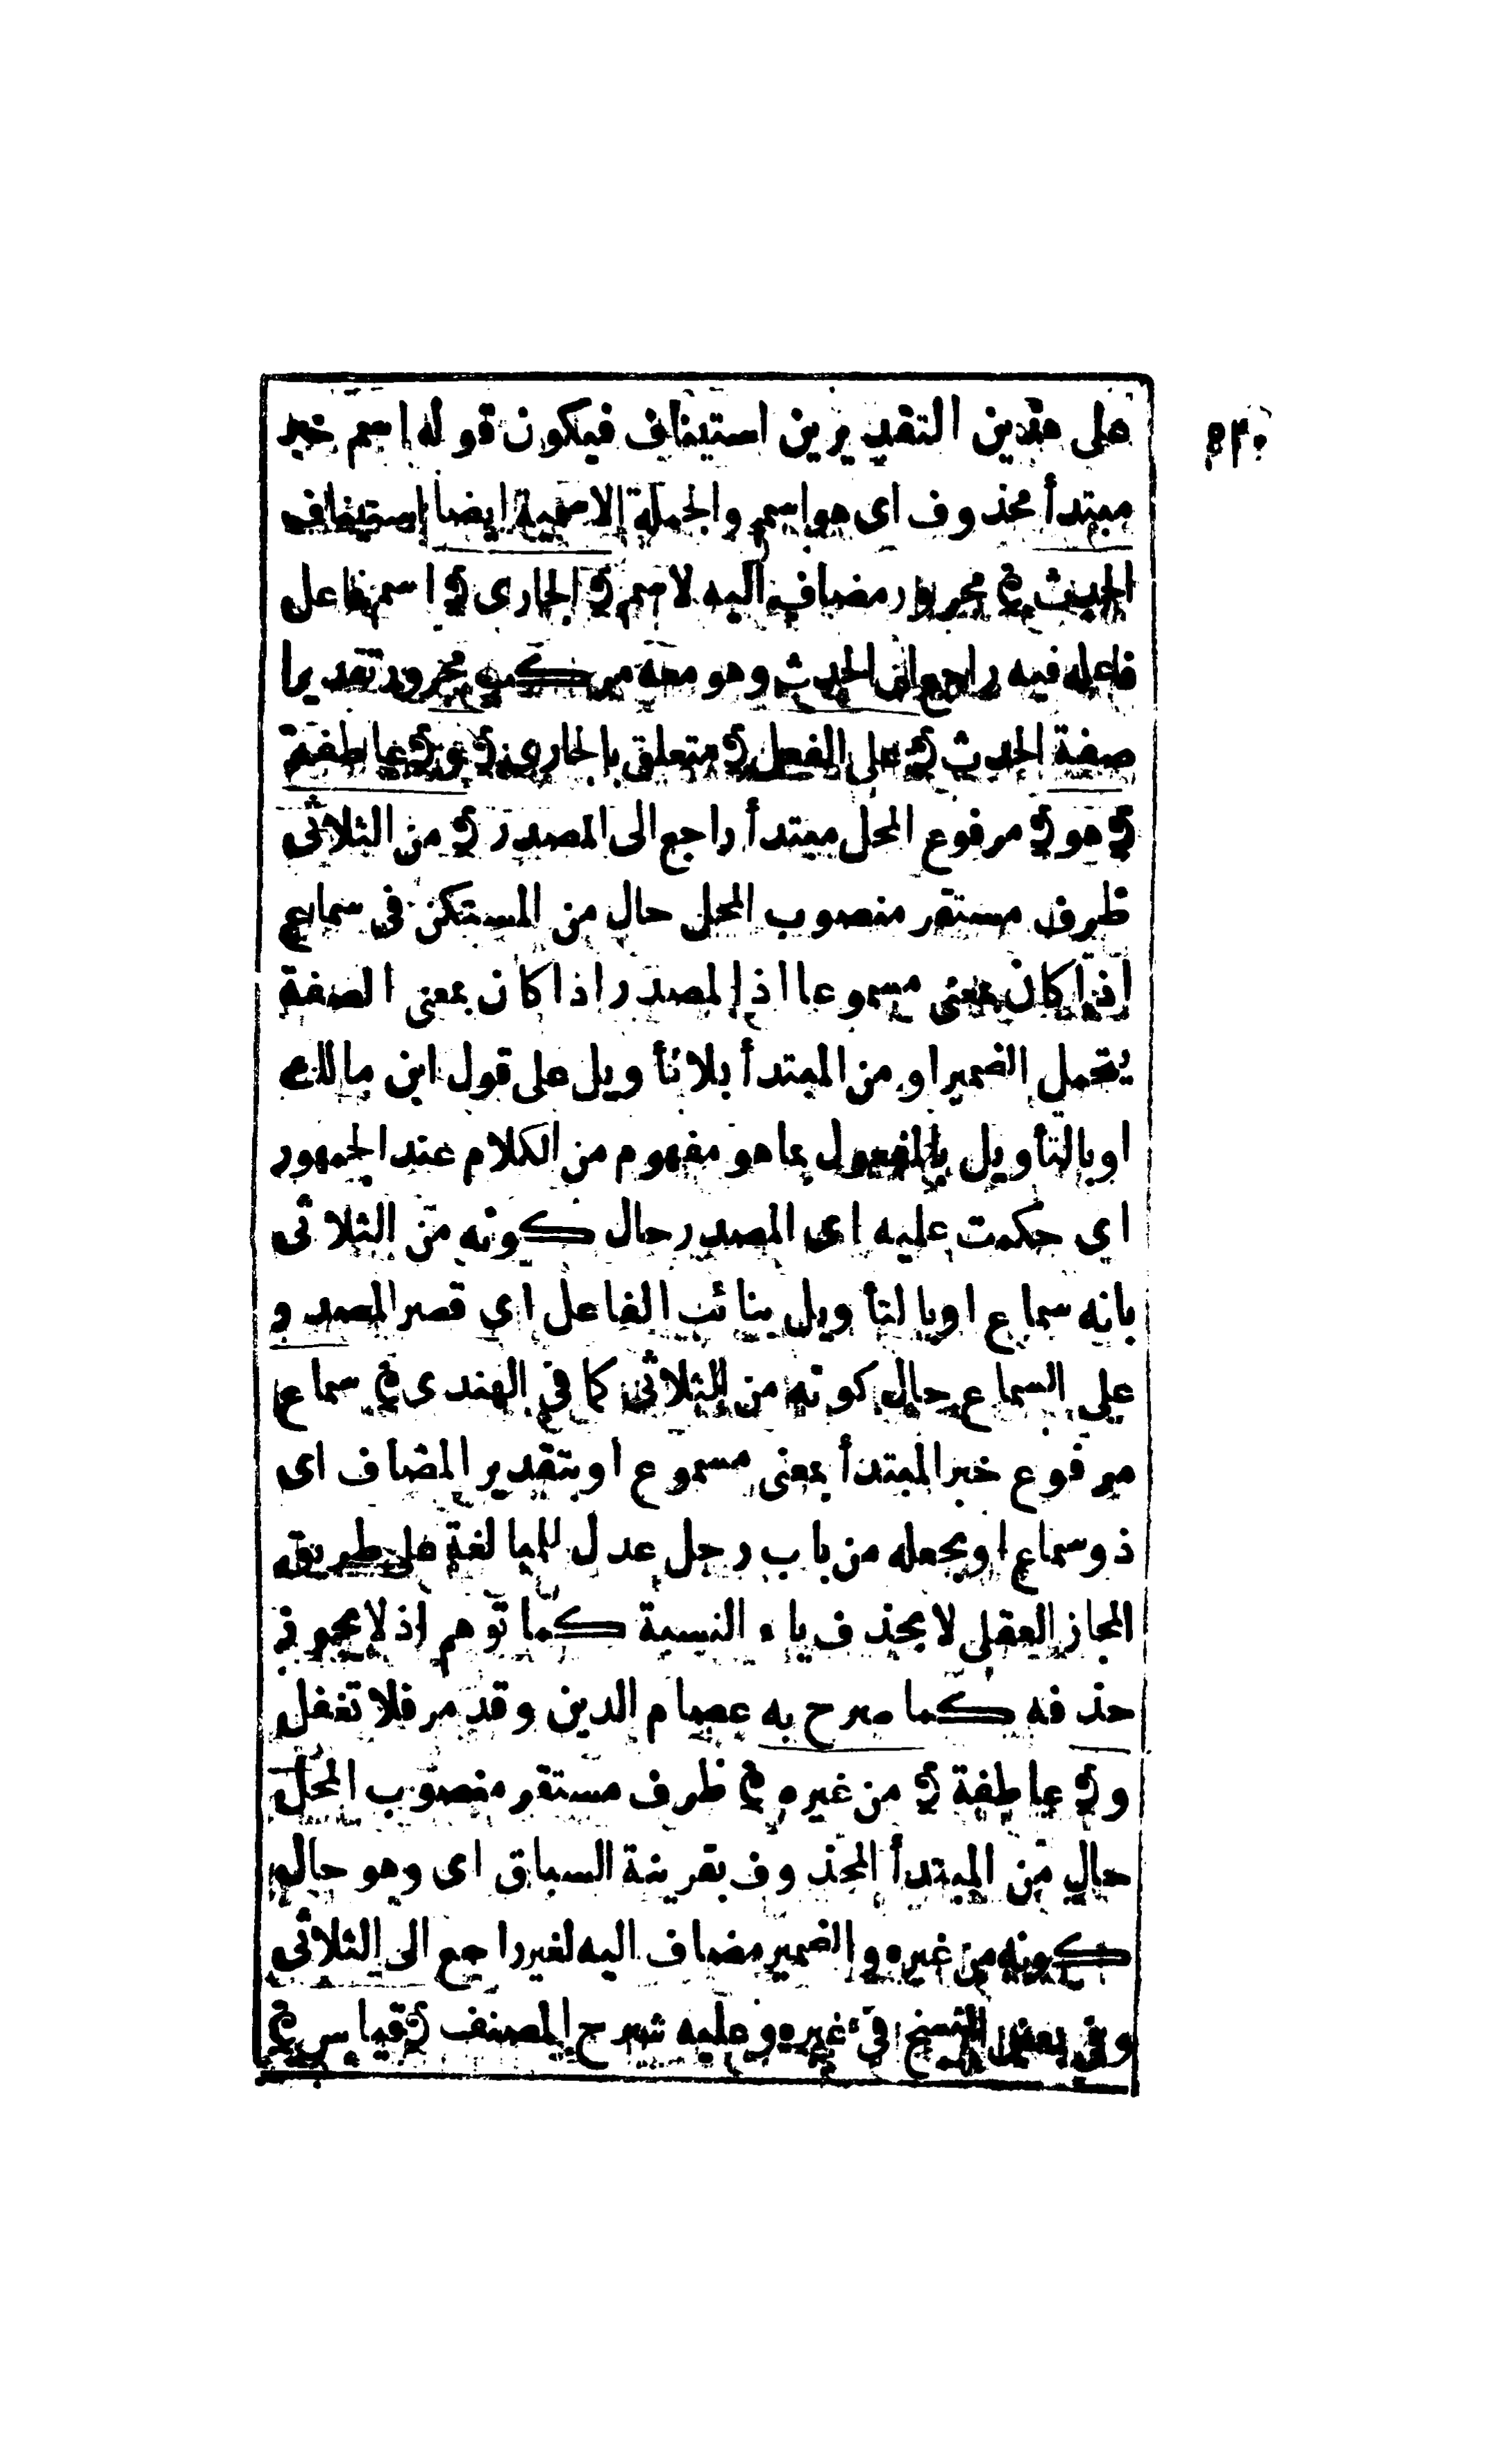 ٥٤٠
على هذين التقديرين استيناف فيكون قوله اسم خبر
مبتدأ محذوف اى هو اسم والجملة الاسمية ايضا استيناف
الحدث ﴾ مجرور مضاف اليه لاسم ﴿ الجارى ﴾ اسم فاعل
فاعله فيه راجع الى الحدث وهو معه مركب مجرور تقديرا
صفة الحدث ﴿ على الفعل ﴾ متعلق بالجارى ﴿ و ﴾ عاطفة
﴿ هو ﴾ مرفوع المحل مبتدأ راجع الى المصدر ﴿ من الثلاثى
ظرف مستقر منصوب المحل حال من المستكن فى سماع
اذا كان بمعنى مسموعا اذ المصدر اذا كان بمعنى الصفة
يتحمل الضمير او من المبتدأ بلا تأويل على قول ابن مالك
او بالتأويل بالمفعول بما هو مفهوم من الكلام عند الجمهور
اي حكمت عليه اى المصدر حال كونه من الثلاثى
بانه سماع او بالتأويل بنائب الفاعل اى قصر المصدر
على السماع حال كونه من الثلاثى كما فى الهندى ﴾ سماع
مرفوع خبر المبتدأ بمعنى مسموع او بتقدير المضاف اى
ذو سماع او بجعله من باب رجل عدل للمبالغة على طريقه
المجاز العقلى لا بحذف ياء النسبة كما توهم اذ لا يجوز
حذفه كما صرح به عصام الدين وقد مر فلا تغفل
و ﴾ عاطفة ﴿ من غيره ﴾ ظرف مستقر منصوب المحل
حال من المبتدأ المحذوف بقرينة السباق اى وهو حال
كونه من غيره والضمير مضاف اليه لغير راجع الى الثلاثى
وفى بعض النسخ فى غيره وعليه شرح المصنف ﴿ قياس ﴾